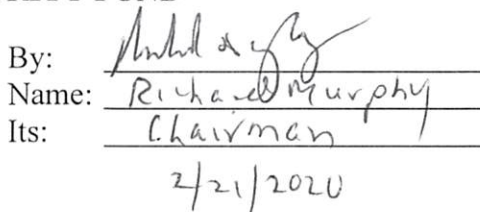 By:
Name: Richard Murphy
Its: Chairman
2/21/2020